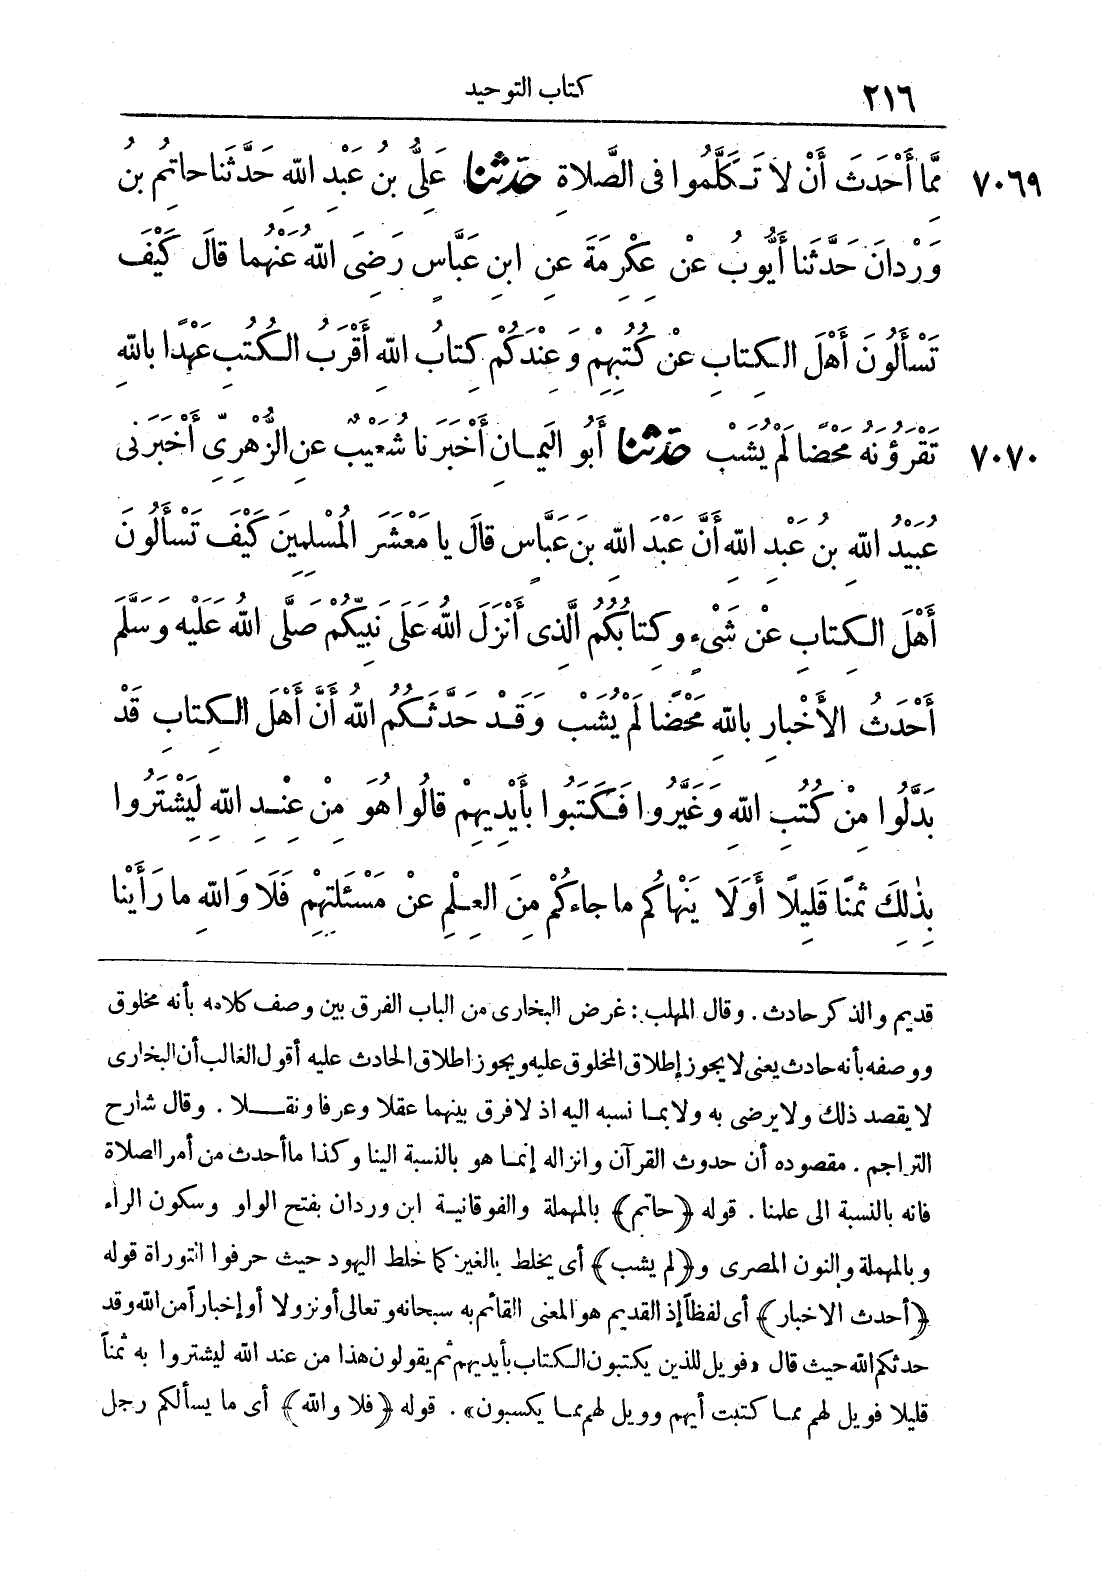 ٢١٦
كتاب التوحيد
٧٠٦٩ مِمَّا أَحْدَثَ أَنْ لَا تَكَلَّمُوا فِى الصَّلَاةِ حَدَّثَنَا عَلِىُّ بنُ عَبْدِ اللهِ حَدَّثَنَا حاتِمُ بنُ
وَرْدانَ حَدَّثَنا أَيُّوبُ عَنْ عِكْرِمَةَ عَنِ ابنِ عَبَّاسٍ رَضِىَ اللهُ عَنْهُما قالَ كَيْفَ
تَسْأَلُونَ أَهْلَ الكِتابِ عَنْ كُتُبِهِمْ وَعِنْدَكُمْ كِتابُ اللهِ أَقْرَبُ الكُتُبِ عَهْدًا باللهِ
٧٠٧٠ تَقْرَؤُنَهُ مَحْضًا لَمْ يُشَبْ حَدَّثَنَا أَبُو اليَمانِ أَخْبَرَنا شُعَيْبٌ عنِ الزُّهْرِىِّ أَخْبَرَنِى
عُبَيْدُ اللهِ بنُ عَبْدِ اللهِ أَنَّ عَبْدَ اللهِ بنَ عَبَّاسٍ قالَ يا مَعْشَرَ المُسْلِمِينَ كَيْفَ تَسْأَلُونَ
أَهْلَ الكِتابِ عنْ شَىْءٍ وكِتابُكُمُ الَّذِى أَنْزَلَ اللهُ عَلَى نَبِيِّكُمْ صَلَّى اللهُ عَلَيْهِ وَسَلَّمَ
أَحْدَثُ الأَخْبارِ باللهِ مَحْضًا لَمْ يُشَبْ وَقَدْ حَدَّثَكُمُ اللهُ أَنَّ أَهْلَ الكِتابِ قَدْ
بَدَّلُوا مِنْ كُتُبِ اللهِ وَغَيَّرُوا فَكَتَبُوا بأَيْدِيهِمْ قالُوا هُوَ مِنْ عِنْدِ اللهِ لِيَشْتَرُوا
بِذٰلِكَ ثَمَنًا قَلِيلًا أَوَلَا يَنْهاكُمْ ماجاءَكُمْ مِنَ العِلْمِ عَنْ مَسْئَلَتِهِمْ فَلَا وَاللهِ ما رَأَيْنا
قديم والذكر حادث . وقال المهلب : غرض البخارى من الباب الفرق بين وصف كلامه بأنه مخلوق
ووصفه بأنه حادث يعنى لا يجوز إطلاق المخلوق عليه ويجوز اطلاق الحادث عليه أقول الغالب أن البخارى
لا يقصد ذلك ولا يرضى به ولا بما نسبه اليه اذ لا فرق بينهما عقلا وعرفا ونقلا . وقال شارح
التراجم . مقصوده أن حدوث القرآن وانزاله إنما هو بالنسبة الينا وكذا ما أحدث من أمر الصلاة
فانه بالنسبة الى علمنا . قوله ﴿حاتم﴾ بالمهملة والفوقانية ابن وردان بفتح الواو وسكون الراء
وبالمهملة والنون المصرى و﴿لم يشب﴾ أى يخلط بالغير كما خلط اليهود حيث حرفوا التوراة قوله
﴿أحدث الاخبار﴾ أى لفظاً إذ القديم هو المعنى القائم به سبحانه وتعالى أو نزولا أو إخباراً من الله وقد
حدثكم الله حيث قال «فويل للذين يكتبون الكتاب بأيديهم ثم يقولون هذا من عند الله ليشتروا به ثمناً
قليلا فويل لهم مما كتبت أيهم وويل لهم مما يكسبون» . قوله ﴿فلا والله﴾ أى ما يسألكم رجل